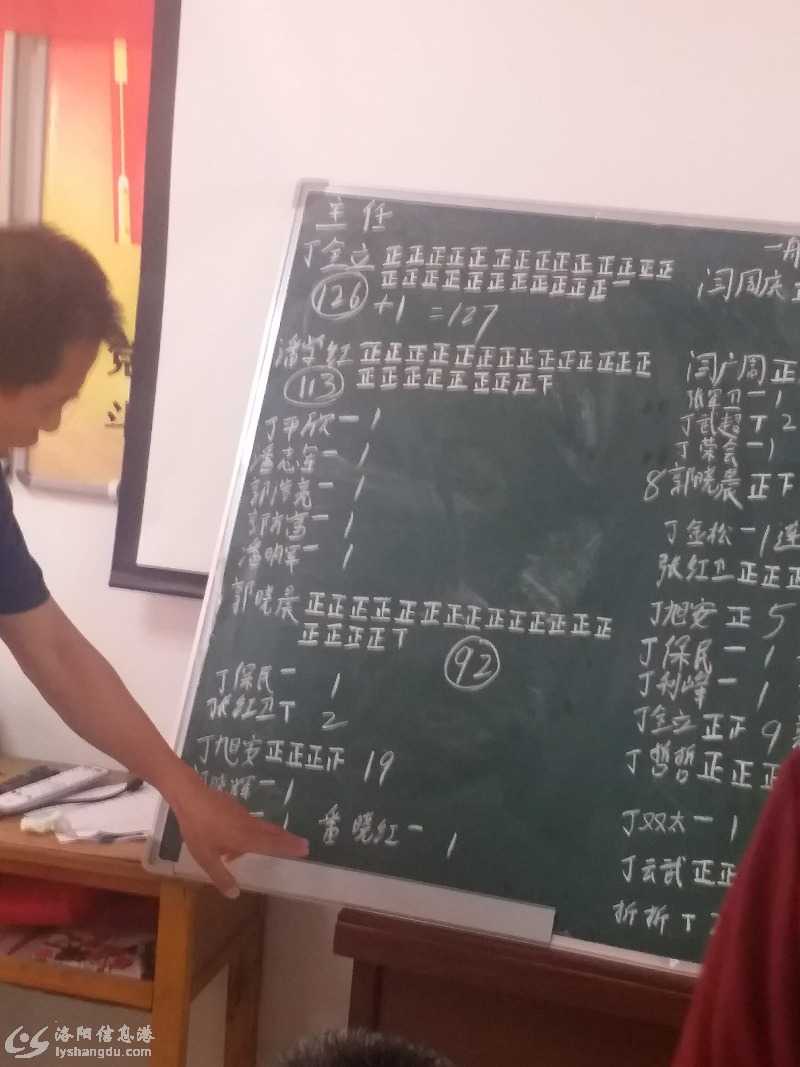 主任
丁金立 正正正正正正正正正正正正正
正正正正正正正正正正一
126 +1 =127
潘学红 正正正正正正正正正正正正正
正正正正正正正正下
113
丁甲欣一 1
潘志军一 1
郭洪亮一 1
一 1
潘明军一 1
郭晓晨 正正正正正正正正正正正正正
正正正正丅
92
丁保民一 1
张红卫丅 2
丁旭安正正正正 19
晓辉一 1
一 1 番晓红一 1
一般
闫周庆 正
闫广周 正
张军卫一 1
丁武超丅 2
丁荣会一 1
8 郭晓晨 正下
丁金松一 1 连
张红卫 正正正
丁旭安 正 5
丁保民一 1
丁利峰一 1
丁金立 正正 9
丁哲哲 正正正
丁双太一 1
丁云武 正正
折折 丅 2
党
洛阳信息港
lyshangdu.com